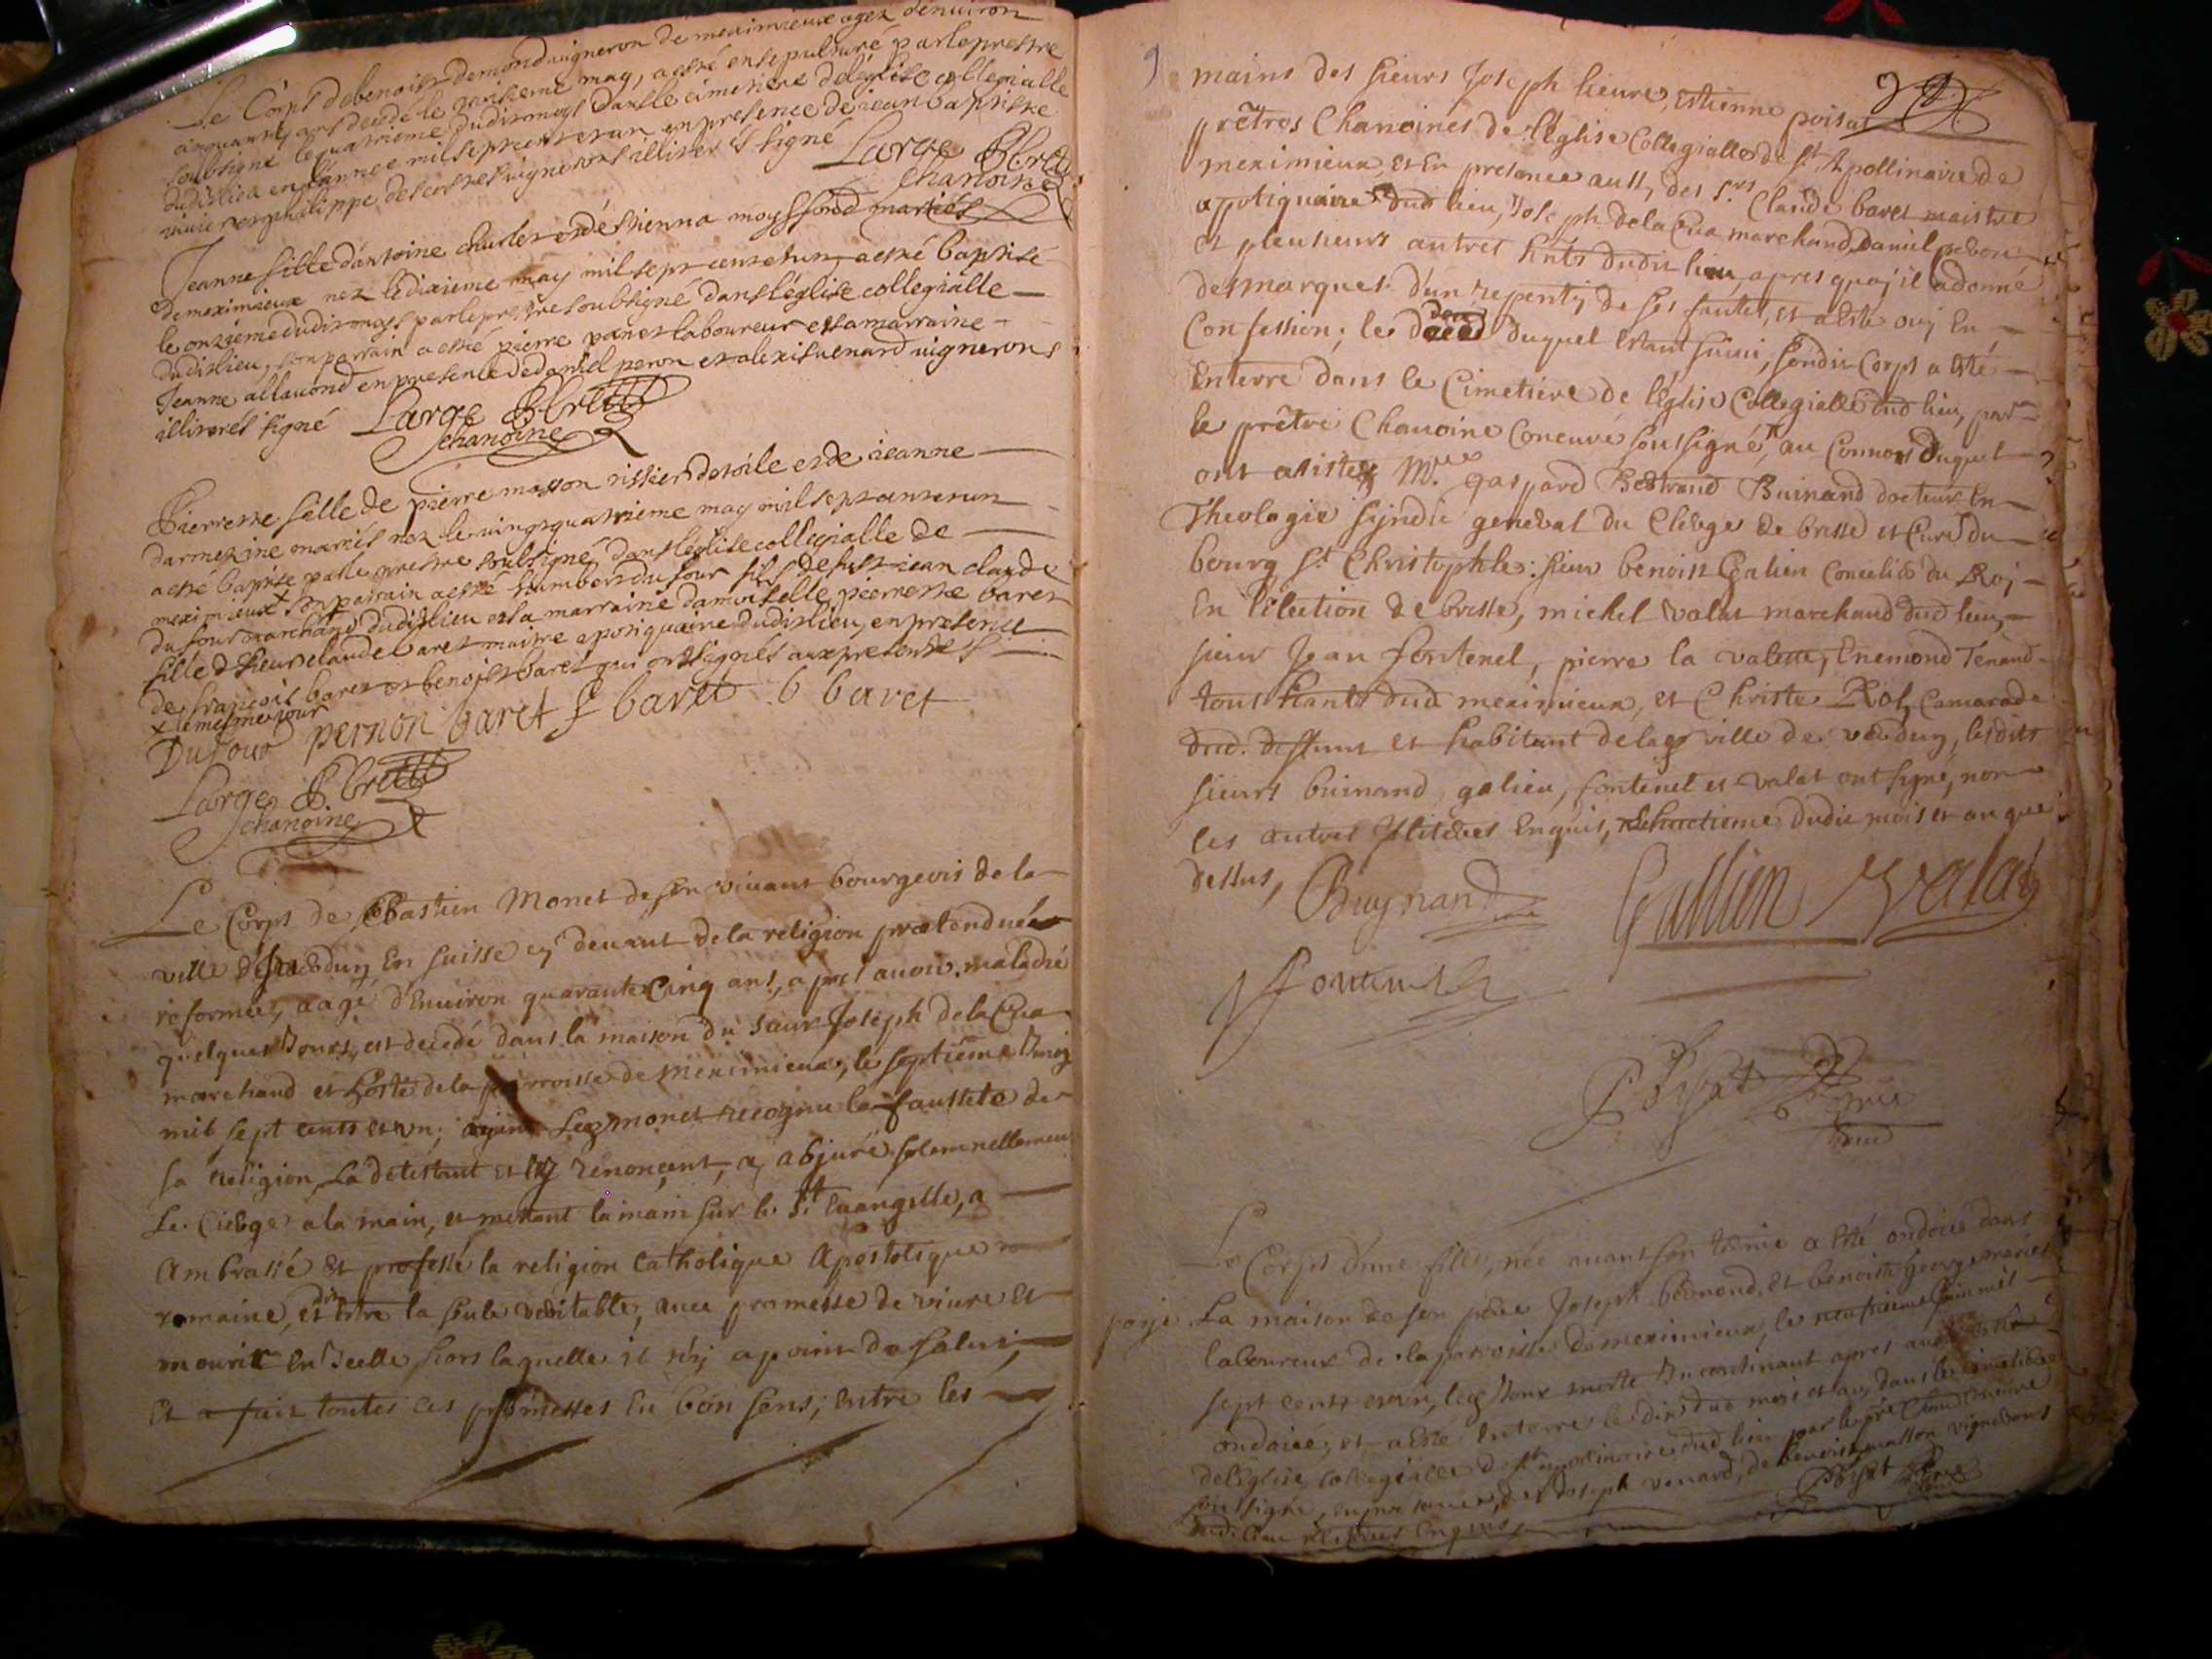 Le Corps de benoist demond vigneron de meximieux agez denuiron
cinquante ans decedé le troisieme may, a esté ensepulturé par le prestre
soubsigné le quatrieme dudit moys dans le cimetiere de leglise collegialle
dudit lieu en lannee mil sept cent et un en presence de jean baptiste
et philippe descostes vignerons illiterés signé
Large Pbre
chanoine
Jeanne fille dantoine charles et déstienna moyssond mariés
de meximieux nez le dixieme may mil sept cent et un, a esté baptisé
le onzieme dudit moys par le prestre soubsigné dans léglise collegialle
dudit lieu, son parrain a esté pierre panet laboureur et sa marraine
Jeanne allauond en presence de daniel peron et alexis uenard uignerons
illiterés signé Large Pbre
chanoine
Pierreste fille de pierre masson tissier de toile et de jeanne
darmezine mariés nez le vingt quatrieme may mil sept cent et un
a esté baptisé par le prestre soubsigné dans leglise collegialle de
meximieux + son parrain a esté humbert dufour fils de fust jean claude
dufour marchand dudit lieu et sa marraine damoiselle pierreste baret
fille de sieur claude baret maitre apotiquaire dudit lieu, en presence
de françois baret et benoist baret qui ont signés aux presentes
+ le mesme jour
Dufour pernon baret f baret b baret
Large Pbre
chanoine
Le Corps de Sebastien Monet de son viuant bourgeois de la
ville d'yverdun En suisse cy deuant de la religion pretenduée
reformée, aagé d'Enuiron quarante Cinq ans, apres auoir maladié
quelques Jours, est decedé dans la maison du sieur Joseph de la Crua
marchand et hoste de la parroisse de Meximieux, le septiéme Juin
mil sept cents et un; ayant led monet recognu la fausseté de
sa religion, La detestant et y renonçant, a abjuré solemnellement
Le Cierge a la main, et mettant la main sur le St Euangille, a
Ambrassé et professé la religion Catholique Apostolique
romaine, et dit etre la seule veritable, auec promesse de viure et
mourir En Icelle hors laquelle il n'y a point de salut;
Et a fait toutes ces promesses En bon sens, entre les
mains des sieurs Joseph lieure, Estienne poisat
prêtres Chanoines de l'Eglise Collegialle de St Apollinaire de
meximieux, et En presence aussy des Srs Claude baret maistre
appotiquaire dud lieu, Joseph de la Crua marchand, Daniel
et plusieurs autres hnts dudit lieu, apres quoy il a donné
des marques d'un repenty de ses fautes, et a esté ouy En
Confession; le deced duquel Estant suiui, sondit Corps a esté
Enterré dans le Cimetiere de l'Eglise Collegialle dud lieu, par
le prêtre Chanoine Concuré soussigné, au Conuoy duquel
ont assistez Mre gaspard Bertrand Buinand docteur En
Theologie syndic general du Clergé de bresse et Curé du
bourg St Christophle: sieur benoist Galien Conseiller du Roj
En l'élection de bresse, michel valat marchand dud lieu,
sieur Jean fontenel, pierre la valette, Enemond Tenand
tous hants dud meximieux, et Christe Rol, Camarade
dud. deffunt et habitant de la ville de verdun, lesdits
sieurs buinand, galien, fontenel et valat ont signé, non
les autres Illiterés Enquis, Le huictieme dudit mois et an que
dessus, Buynand Gallien Valat
J fontenel
P Poysat
Le Corps d'une fille, née auant son terme a esté ondoiée dans
La maison de son pere Joseph bermond, et benoiste george mariés
laboureur de la parroisse de meximieux, le neufuieme juin mil
sept cents et un, led Jour morte Incontinant apres auoir esté
ondoiée, et a esté Enterrée le dix dud mois et an, dans le cimetiere
de l'Eglise collegialle de St apollinaire dud lieu par le pre Chne Concuré
soussigné, En presence de Joseph venard, de benoist masson vignerons
dudit lieu illiterés Enquis,
Poysat